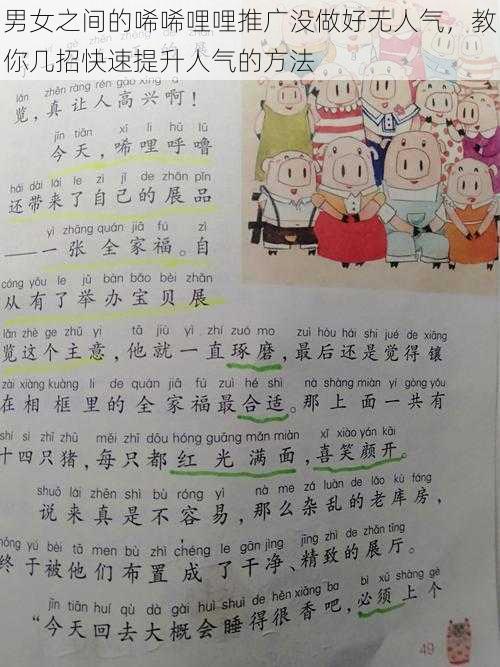 男女之间的唏唏哩哩推广没做好无人气，教
你几招快速提升人气的方法
lǎn zhēn ràng rén gāo xìng a
览，真让人高兴啊！
jīn tiān xī li hū lū
今天，唏哩呼噜
hái dài lái le zì jǐ de zhǎn pǐn
还带来了自己的展品
yì zhāng quán jiā fú zì
——一张全家福。自
cóng yǒu le jǔ bàn bǎo bèi zhǎn
从有了举办宝贝展
lǎn zhè ge zhǔ yi tā jiù yì zhí zuó mo zuì hòu hái shi jué de xiāng
览这个主意，他就一直琢磨，最后还是觉得镶
zài xiàng kuàng li de quán jiā fú zuì hé shì nà shàng miàn yí gòng yǒu
在相框里的全家福最合适。那上面一共有
shí sì zhī zhū měi zhī dōu hóng guāng mǎn miàn xǐ xiào yán kāi
十四只猪，每只都红光满面，喜笑颜开。
shuō lái zhēn shì bù róng yì nà me zá luàn de lǎo kù fáng
说来真是不容易，那么杂乱的老库房，
zhōng yú bèi tā men bù zhì chéng le gān jìng jīng zhì de zhǎn tīng
终于被他们布置成了干净、精致的展厅。
jīn tiān huí qù dà gài huì shuì de hěn xiāng ba bì xū shàng gè
“今天回去大概会睡得很香吧，必须上个
49